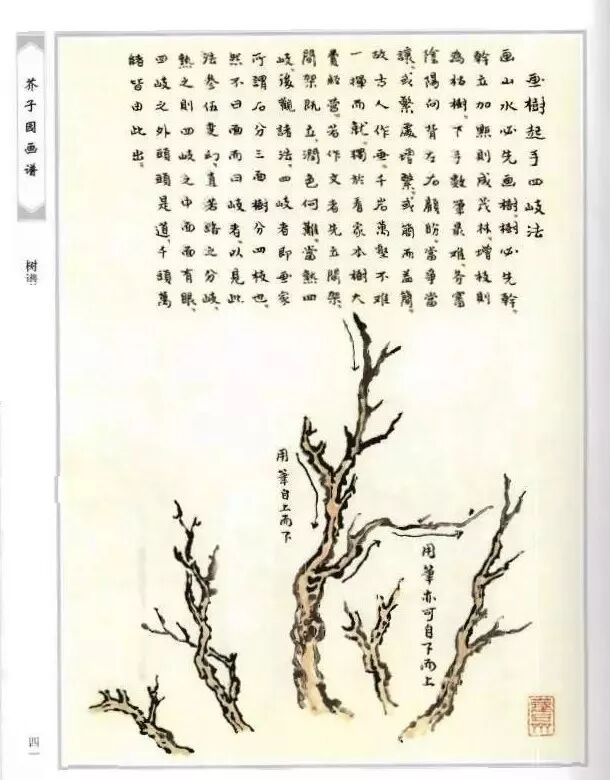 画樹起手四岐法
画山水必先画樹、樹必先幹、
幹立加點則成茂林、增枝則
為枯樹、下手數筆最難、務審
陰陽向背、左右顧盼、當爭當
讓、或繁處增繁、或簡而益簡、
故古人作画、千岩萬壑不難
一揮而就、獨於看家本樹大
費經營、若作文者先立間架、
間架既立、潤色何難、當然四
岐、後觀諸法、四岐者即画家
所謂石分三面、樹分四枝也、
然不曰面而曰岐者、以見此
法參伍變幻、直若路之分岐、
熟之則四岐之中面面有眼、
四岐之外頭頭是道、千頭萬
緒皆由此出、
用筆自上而下
用筆亦可自下而上
芥子园画谱
树谱
四一